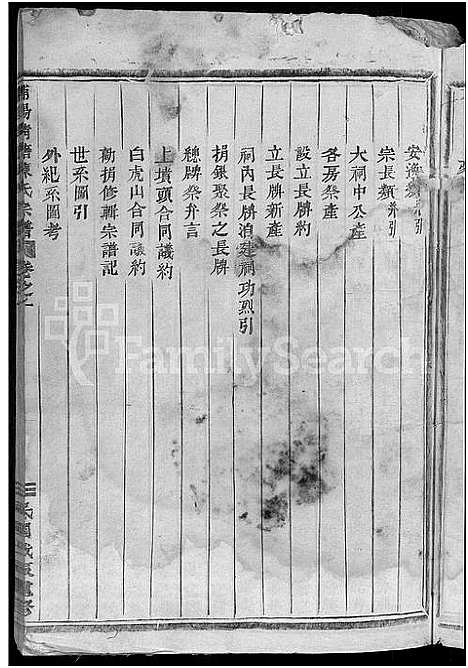 宗長類并引
大祠中公產
各房祭產
設立長牌約
立長牌新產
祠內長牌浪建祠功烈引
捐銀聚祭之長牌
總牌祭弁言
上墳頭合同議約
白虎山合同議約
勸捐修輯宗譜記
世系圖引
外紀系圖考
陳氏宗譜
卷之一
FamilySearch